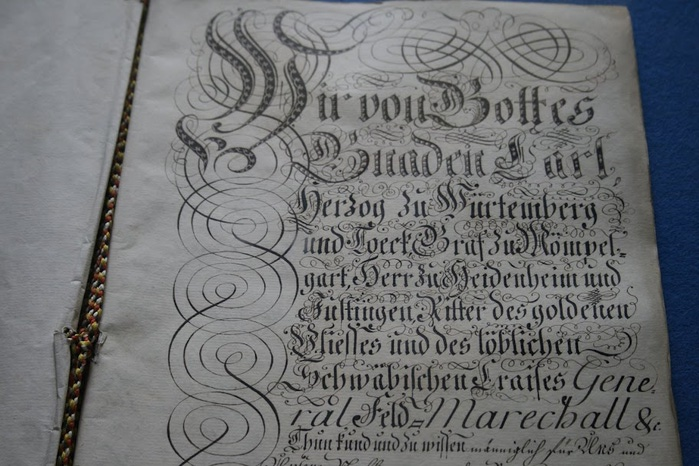 Wir von Gottes
Gnaden Carl,
Herzog zu Würtemberg
und Toeck, Graf zu Mömpel-
gart, Herr zu Heidenheim und
Justingen, Ritter des goldenen
Vliesses und des löblichen
Schwäbischen Craises Gene-
ral Feld-Marechall &c.
Thun kund und zu wissen männiglich für Uns und